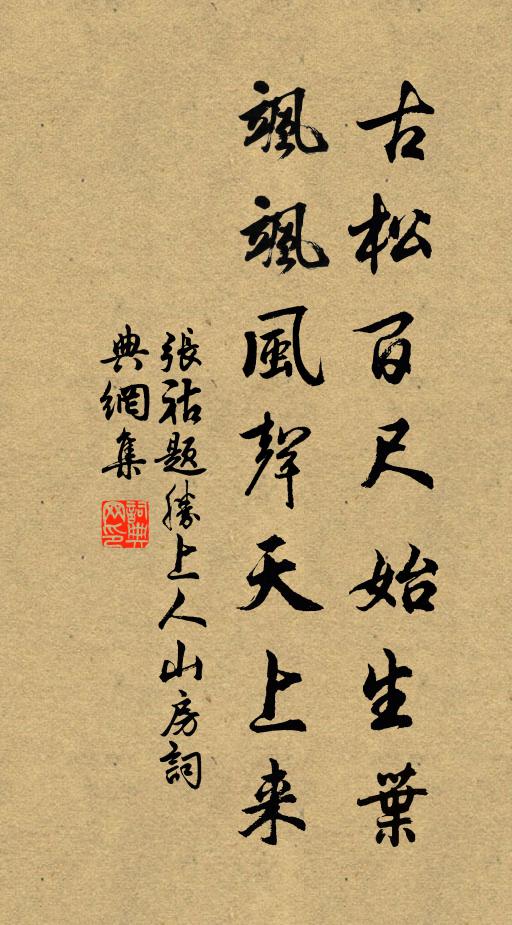 古松百尺始生葉
颯颯風聲天上来
張祜題勝上人山房詞
典網集
詞典
网印